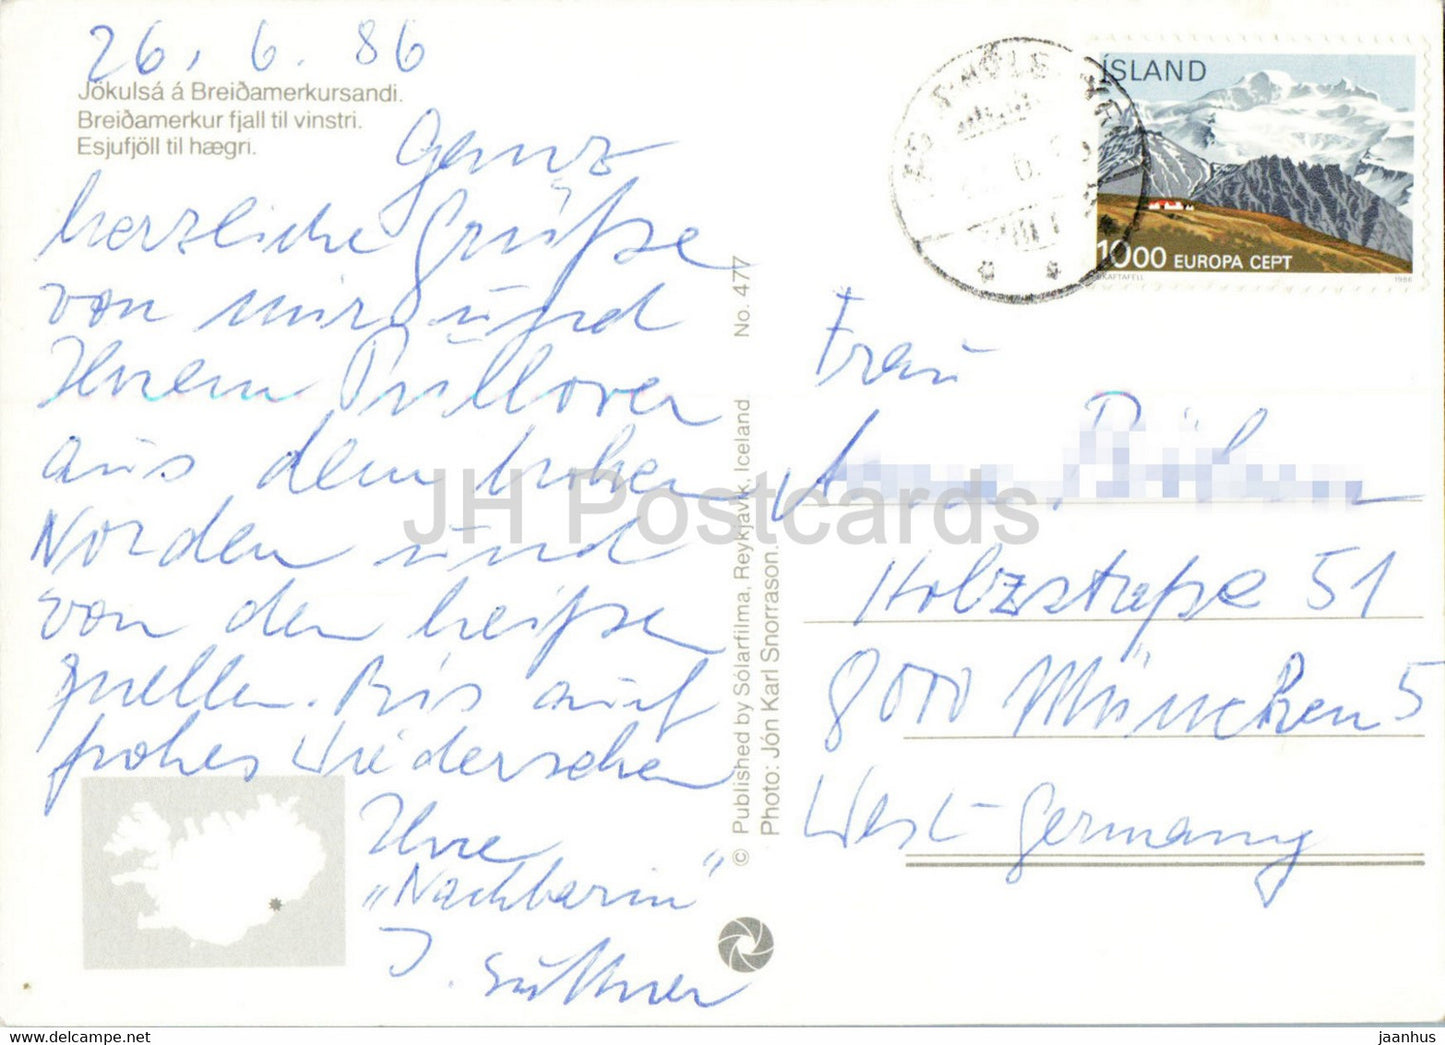 26. 6. 86
Jökulsá á Breiðamerkursandi.
Breiðamerkur fjall til vinstri.
Esjufjöll til hægri.
Ganz
herzliche Grüße
von mir und
Ihrem Pullover
aus dem hohen
Norden und
von den heißen
Quellen. Bis auf
frohes Wiedersehen
Ihre
„Nachbarin"
J. Süttner
© Published by Sólarfilma, Reykjavík, Iceland. No. 477
Photo: Jón Karl Snorrason.
ÍSLAND
1000 EUROPA CEPT
SKAFTAFELL 1986
Frau
Holzstraße 51
8000 München 5
West-Germany
JH Postcards
jaanhus